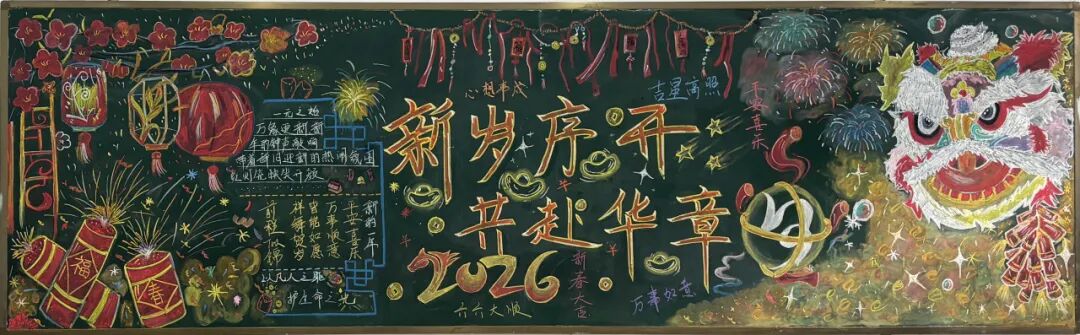 心想事成
吉星高照
平安喜乐
一元之始
万象更新
年的钟声敲响
新岁序开
共赴华章
2026
新的年
平安喜乐
万事顺意
皆能如愿
前程似锦
以凡人之躯
护生命之光
新春大吉
六六大顺
万事如意
福
春